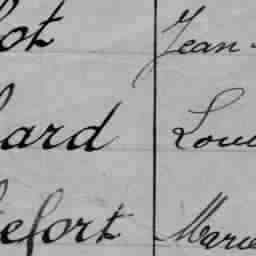 ot Jean
ard Loui
efort Marie